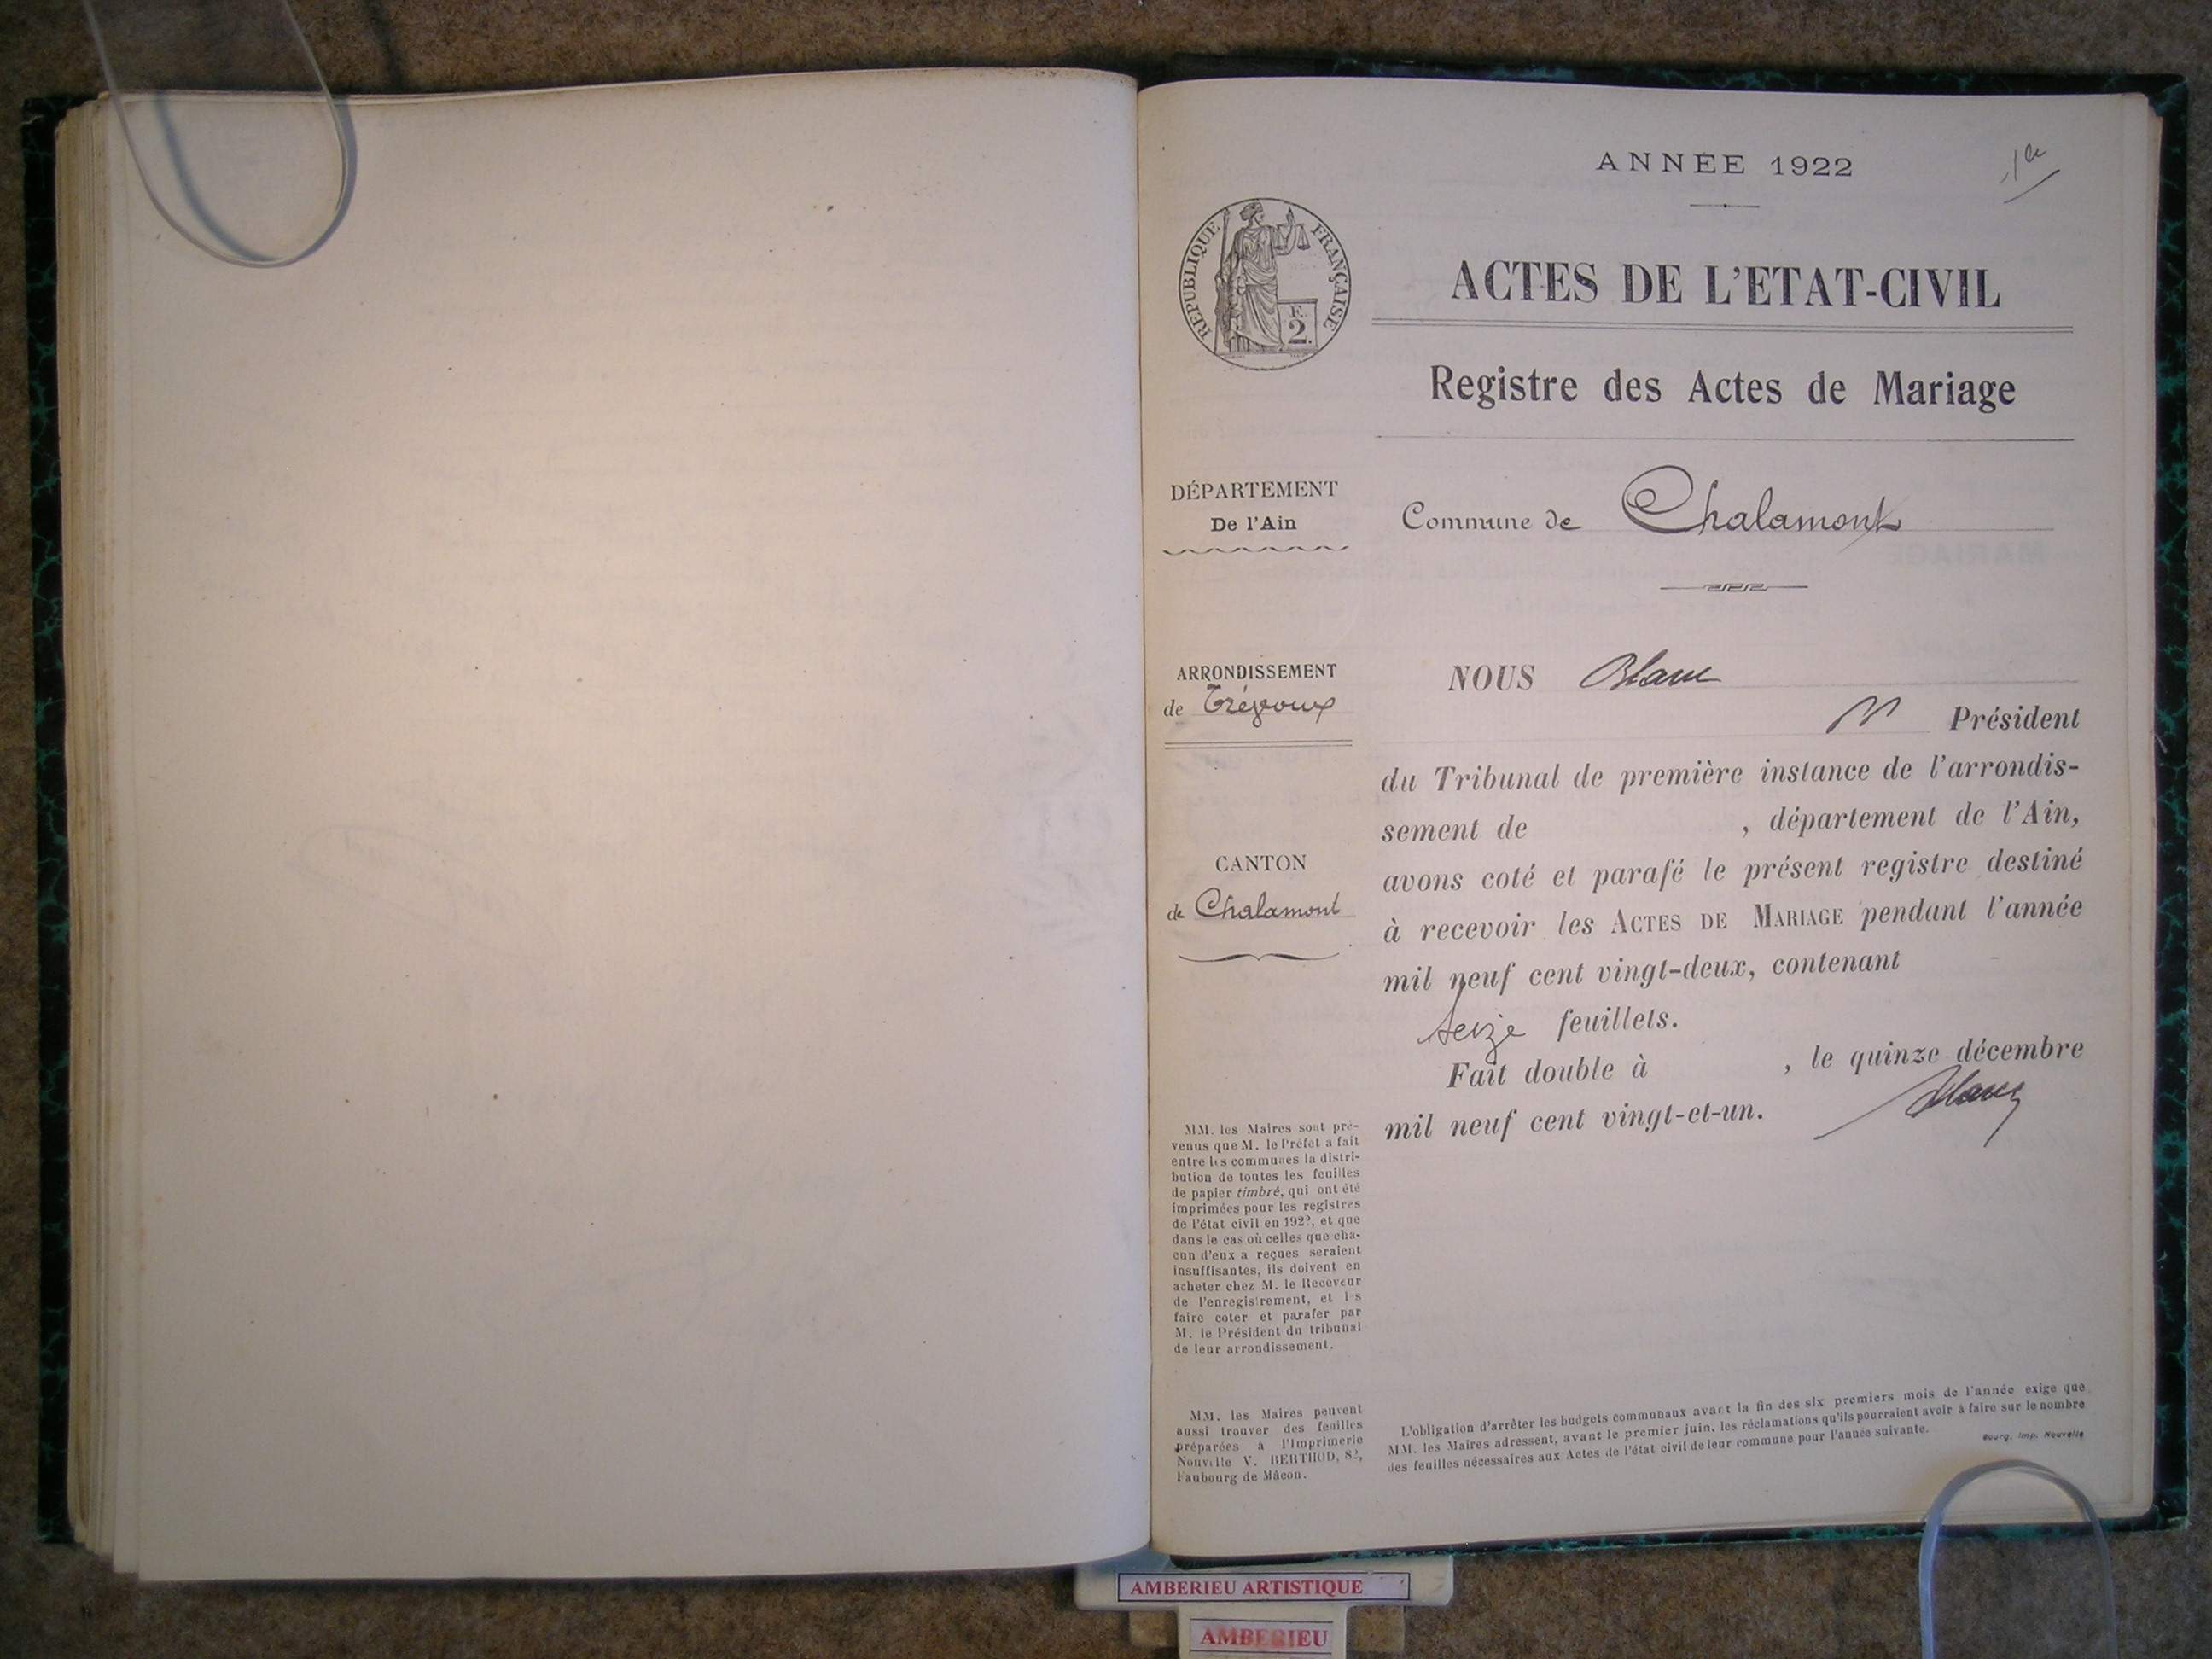 ANNÉE 1922
1er
RÉPUBLIQUE FRANÇAISE
E.
2.
ACTES DE L'ETAT-CIVIL
Registre des Actes de Mariage
DÉPARTEMENT
De l'Ain
Commune de Chalamont
ARRONDISSEMENT
de Trévoux
CANTON
de Chalamont
NOUS Blanc
Président
du Tribunal de première instance de l'arrondis-
sement de , département de l'Ain,
avons coté et parafé le présent registre destiné
à recevoir les ACTES DE MARIAGE pendant l'année
mil neuf cent vingt-deux, contenant
seize feuillets.
Fait double à , le quinze décembre
mil neuf cent vingt-et-un.
Blanc
MM. les Maires sont pré-
venus que M. le Préfet a fait
entre les communes la distri-
bution de toutes les feuilles
de papier timbré, qui ont été
imprimées pour les registres
de l'état civil en 1922, et que
dans le cas où celles que cha-
cun d'eux a reçues seraient
insuffisantes, ils doivent en
acheter chez M. le Receveur
de l'enregistrement, et les
faire coter et parafer par
M. le Président du tribunal
de leur arrondissement.
MM. les Maires peuvent
aussi trouver des feuilles
préparées à l'Imprimerie
Nouvelle V. BERTHOD, 82,
Faubourg de Mâcon.
L'obligation d'arrêter les budgets communaux avant la fin des six premiers mois de l'année exige que
MM. les Maires adressent, avant le premier juin, les réclamations qu'ils pourraient avoir à faire sur le nombre
des feuilles nécessaires aux Actes de l'état civil de leur commune pour l'année suivante.
Bourg. Imp. Nouvelle
AMBERIEU ARTISTIQUE
AMBERIEU